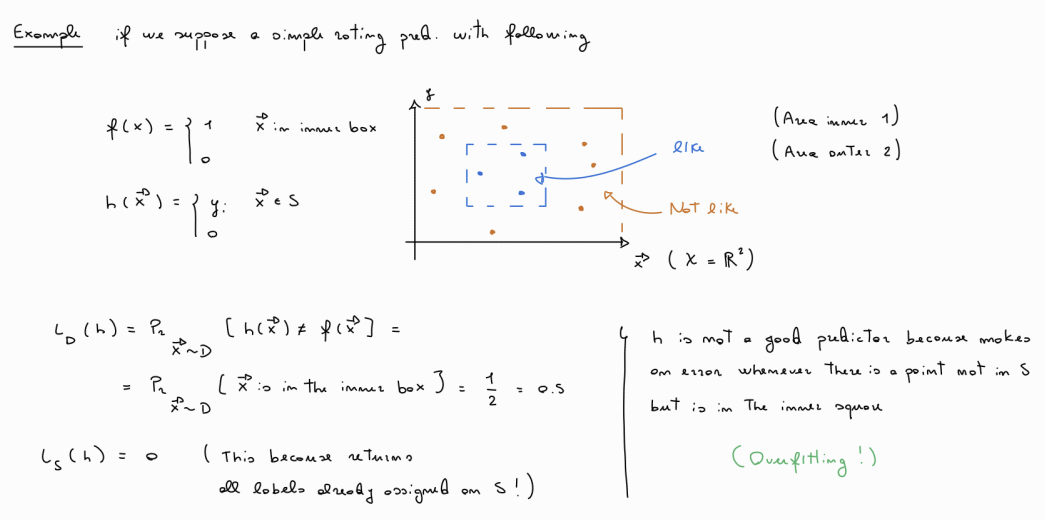 Example if we suppose a simple rating pred. with following
y
f(x) = { 1 x⃗ in inner box
0
h(x⃗) = { yᵢ x⃗ ∈ S
0
like
Not like
x⃗ ( X = ℝ² )
(Area inner 1)
(Area outer 2)
L_D (h) = Pr_{x⃗~D} [ h(x⃗) ≠ f(x⃗ ] =
= Pr_{x⃗~D} [ x⃗ is in the inner box ] = 1/2 = 0.5
L_S (h) = 0 ( This because returns
all labels already assigned on S ! )
h is not a good predictor because makes
an error whenever there is a point not in S
but is in the inner square
(Overfitting !)